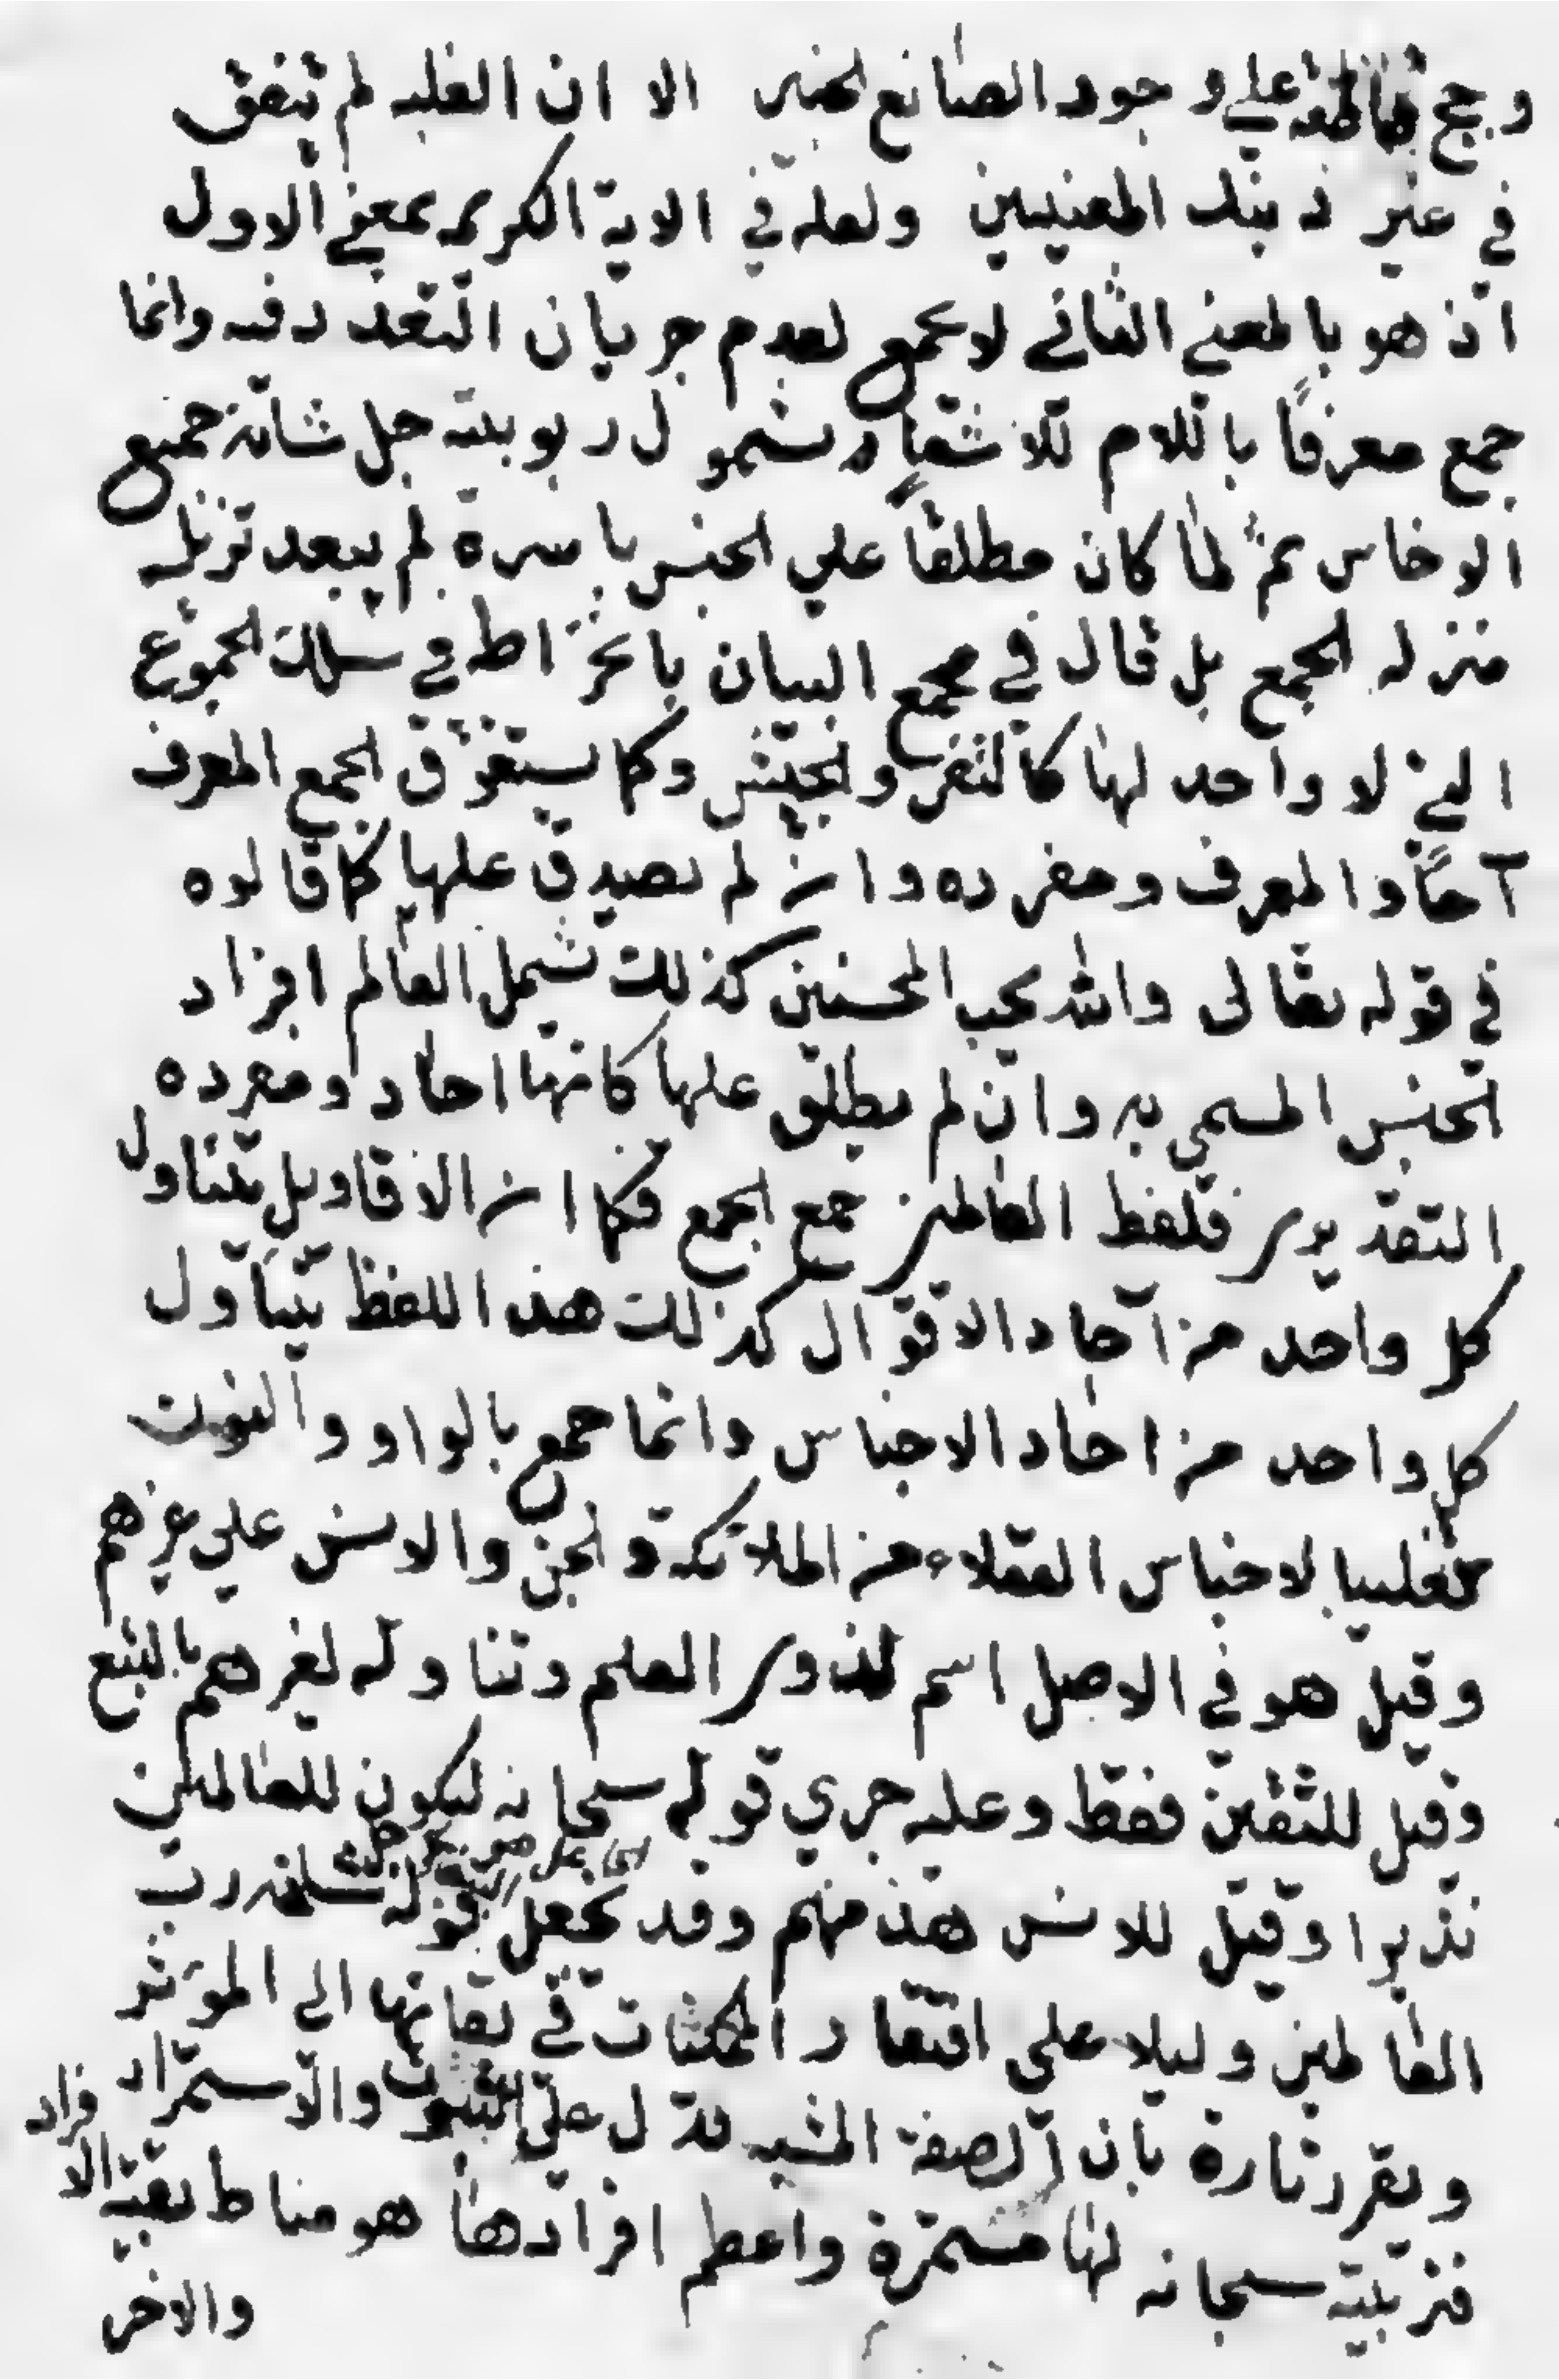 وحجج قاطعة على وجود الصانع الخبير الا ان الغلبه لم تتفق
في غير ذينك المعنيين ولعله في الاية الكريمه بمعنى الاول
اذ هو بالمعنى الثاني لا يجمع لعدم جريان التعدد فيه وانما
جمع معرفاً باللام للاشعار بشمول ربوبيته جل شانه جميع
الاجناس ثم لما كان مطلقاً على الجنس باسرة لم يبعد تنزيله
منزله الجمع بل قال في مجمع البيان بانخراطه في سلك الجموع
التي لا واحد لها كالنفر والجيش وكما يستغرق الجمع المعرف
آحاد المعرف ومفرده وان لم يصدق عليها كما قالوه
في قوله تعالى والله يحب المحسنين كذلك شمل العالم افراد
الجنس المسمى به وان لم يطلق عليها كانها احاد ومفرده
التقديرى فلفظ العالمين جمع الجمع فكما ان الاقاويل يتناول
كل واحد من آحاد الاقوال كذلك هذا اللفظ يتناول
كل واحد من احاد الاجناس وانما جمع بالواو والنون
تغليبا لاجناس العقلاء من الملائكة والجن والانس على غيرهم
وقيل هو في الاصل اسم لذوى العلم وتناوله لغيرهم بالتبع
وقيل للثقلين فقط وعليه جرى قوله سبحانه ليكون للعالمين
نذيرا وقيل للانس هذ منهم وقد يجعل قوله سبحانه رب
العالمين دليلا على افتقار الممكنات في بقائها الى المؤثر
ويقرر تارة بان الصفة المشبه تدل على الثبوت والاستمرار
فتربيته سبحانه لها مستمرة واعظم افرادها هو مناط بقية الافراد
والاخر